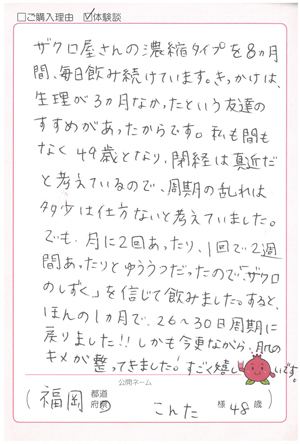 □ご購入理由 ☑体験談
ザクロ屋さんの濃縮タイプを8ヵ月
間、毎日飲み続けています。きっかけは、
生理が3ヵ月なかったという友達の
すすめがあったからです。私も間も
なく49歳となり、閉経は真近だ
と考えているので、周期の乱れは
多少は仕方ないと考えていました。
でも、月に2回あったり、1回で2週
間あったりとゆううつだったので「ザクロ
のしずく」を信じて飲みました。すると、
ほんの1ヵ月で、26〜30日周期に
戻りました!!しかも今更ながら、肌の
キメが整ってきました!すごく嬉しいです。
公開ネーム
(福岡 都道府県 こんた 様 48歳)